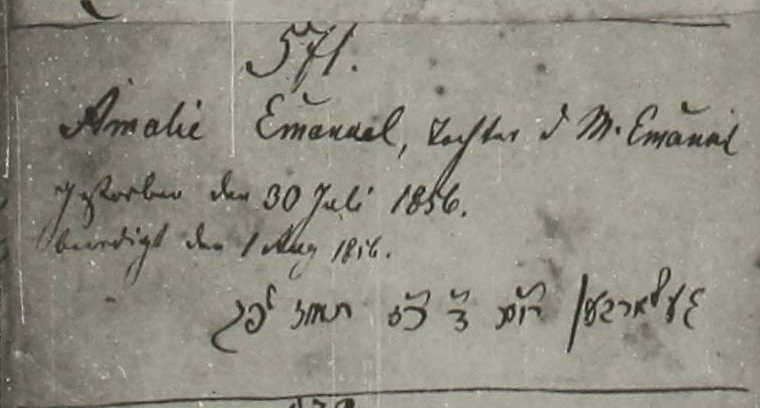 571.
Amalie Emanuel, Tochter d M. Emanuel
gestorben den 30 Juli 1856.
beerdigt den 1 Aug 1856.
יום ד' כ"ז תמוז לפק